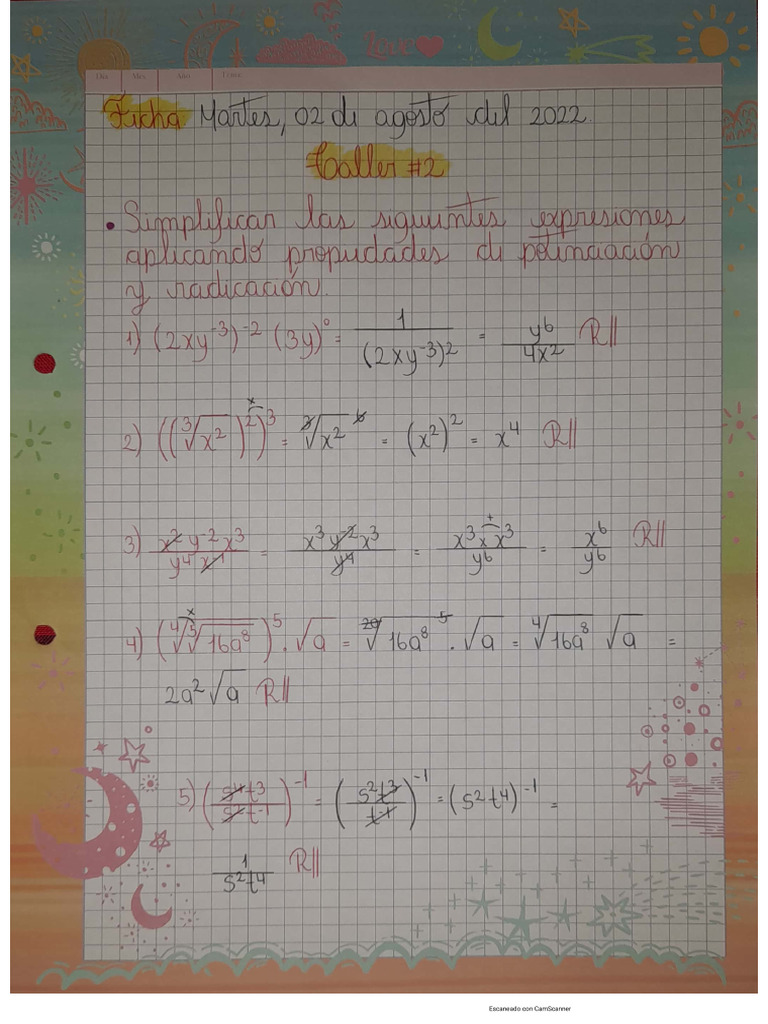 Love
Día Mes Año Tema
Fecha Martes, 02 de agosto del 2022.
Taller #2
• Simplificar las siguientes expresiones
aplicando propiedades de potenciación
y radicación.
1) (2xy⁻³)⁻² (3y)⁰ = 1/(2xy⁻³)² = y⁶/4x² R//
2) ((∛x²)²)³ = ∛x²⁶ = (x²)² = x⁴ R//
3) x²y⁻²x³/y⁴x⁻¹ = x³y⁻²x³/y⁴ = x³xx³/y⁶ = x⁶/y⁶ R//
4) (⁴√⁵√16a⁸)⁵ . √a = ²⁰√16a⁸⁵ . √a = ⁴√16a⁸ √a =
2a²√a R//
5) (s⁴t³/s²t⁻¹)⁻¹ = (s²t³/t⁻¹)⁻¹ = (s²t⁴)⁻¹ =
1/s²t⁴ R//
Escaneado con CamScanner